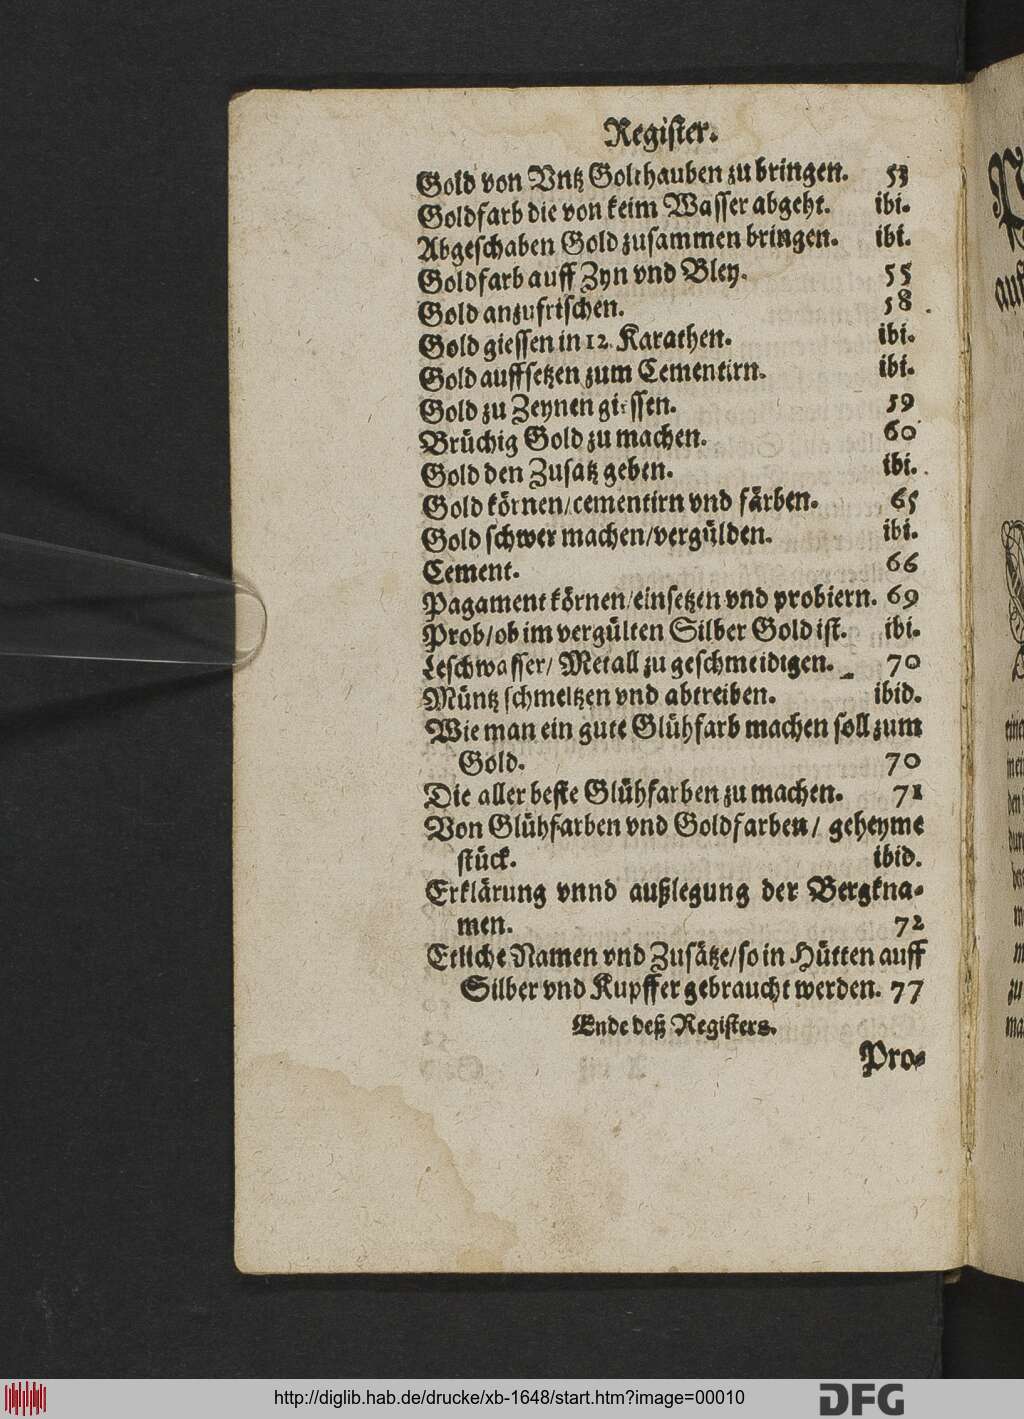 Register.
Gold von Vntz Golthauben zu bringen. 53
Goldfarb die von keim Wasser abgeht. ibi.
Abgeschaben Gold zusammen bringen. ibi.
Goldfarb auff Zyn vnd Bley. 55
Gold anzufrischen. 58
Gold giessen in 12. Karathen. ibi.
Gold auffsetzen zum Cementirn. ibi.
Gold zu Zeynen giessen. 59
Brüchig Gold zu machen. 60
Gold den Zusatz geben. ibi.
Gold körnen/cementirn vnd färben. 65
Gold schwer machen/vergülden. ibi.
Cement. 66
Pagament körnen/einsetzen vnd probiern. 69
Prob/ob im vergülten Silber Gold ist. ibi.
Leschwasser/Metall zu geschmeidigen. 70
Müntz schmeltzen vnd abtreiben. ibid.
Wie man ein gute Glühfarb machen soll zum
Gold. 70
Die aller beste Glühfarben zu machen. 71
Von Glühfarben vnd Goldfarben/ geheyme
stück. ibid.
Erklärung vnnd außlegung der Bergkna-
men. 72
Etliche Namen vnd Zusätze/so in Hütten auff
Silber vnd Kupffer gebraucht werden. 77
Ende deß Registers.
Pro-
http://diglib.hab.de/drucke/xb-1648/start.htm?image=00010
DFG